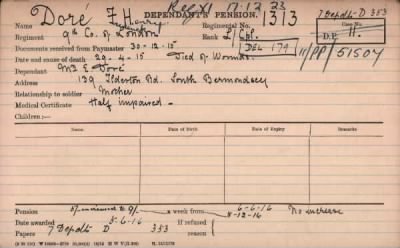 DEPENDANT'S PENSION.
17.12.23
7 Depdts - D 353
Name Doré F. Henry
Regimental No. 1313
Case No.
D.P. 11.
Regiment 9th Co. of London
Rank L/Cpl.
DEL 179
11/PP/51504
Documents received from Paymaster 30-12-15
Date and cause of death 29-4-15 Died of Wounds
Dependant Mrs E. Doré
Address 139 Ilderton Rd. South Bermondsey
Relationship to soldier Mother
Medical Certificate Half impaired -
Children:-
Name Date of Birth Date of Expiry
Pension 5/- increased to 9/- a week from 6-6-16 No increase
8-12-16
Date awarded 5-6-16 (If refused
Papers 7 Depdts D 353 reason)